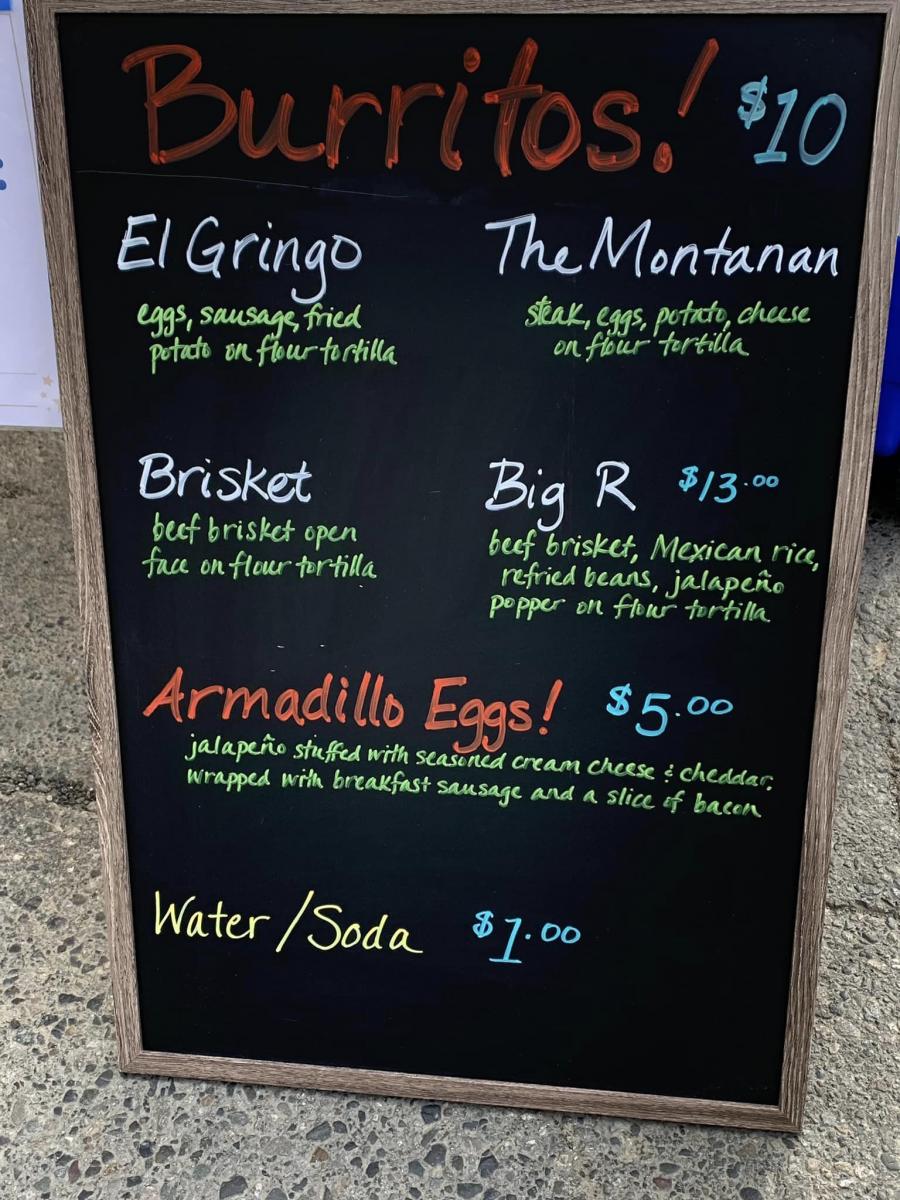 Burritos! $10
El Gringo
eggs, sausage, fried
potato on flour tortilla
The Montanan
steak, eggs, potato, cheese
on flour tortilla
Brisket
beef brisket open
face on flour tortilla
Big R $13.00
beef brisket, Mexican rice,
refried beans, jalapeño
popper on flour tortilla
Armadillo Eggs! $5.00
jalapeño stuffed with seasoned cream cheese & cheddar,
wrapped with breakfast sausage and a slice of bacon
Water/Soda $1.00